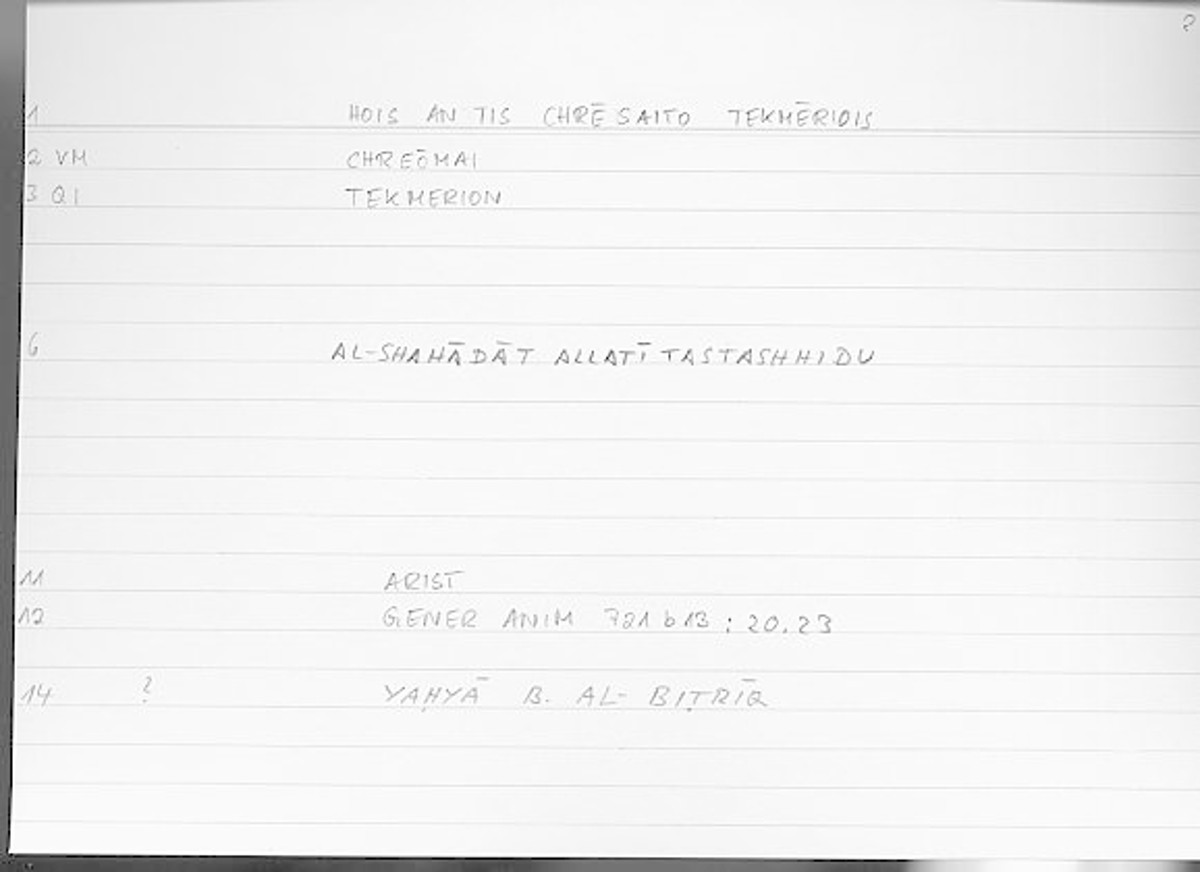 ?
1 HOIS AN TIS CHRĒSAITO TEKMĒRIOIS
2 VM CHREŌMAI
3 QI TEKMERION
6 AL-SHAHĀDĀT ALLATĪ TASTASHHIDU
11 ARIST
12 GENER ANIM 721 b 13 : 20.23
14 ? YAḤYĀ B. AL-BIṬRĪQ